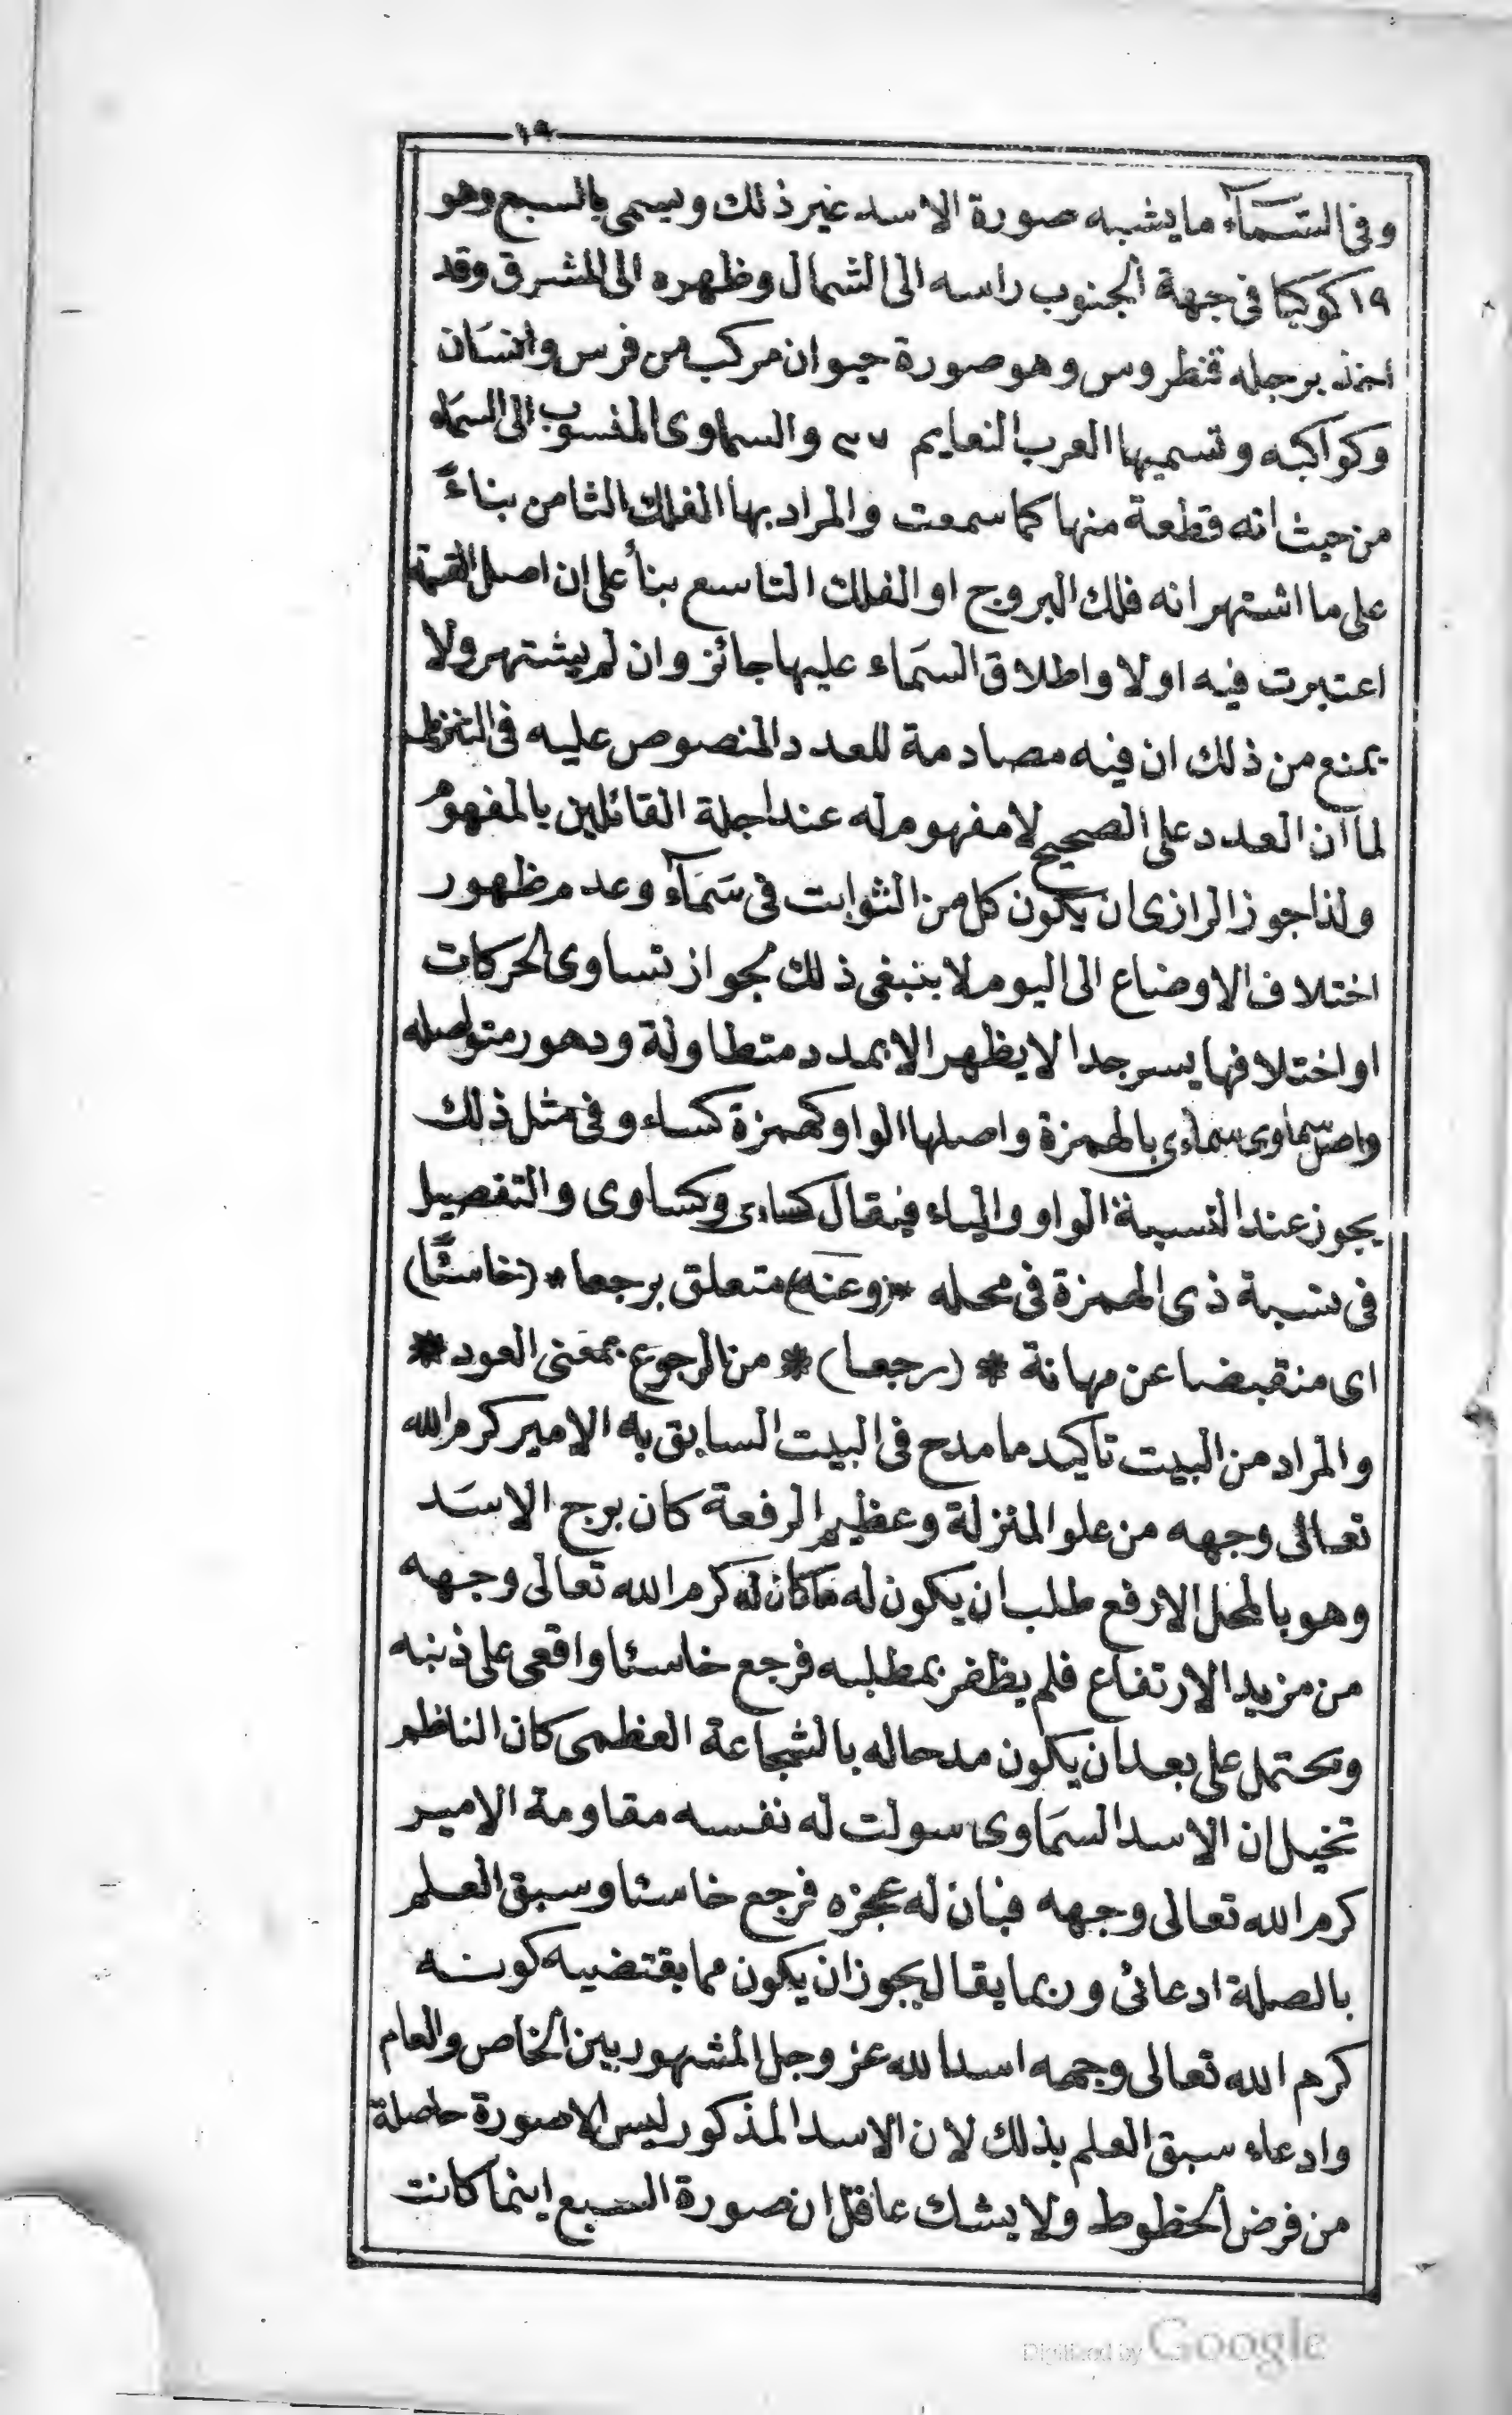 ١٩
وفى السَّمَآء ما يشبه صورة الاسد غير ذلك ويسمى بالسبع وهو
١٩ كوكبا فى جهة الجنوب راسه الى الشمال وظهره الى المشرق وقد
اخذ برجله قنطروس وهو صورة حيوان مركب من فرس وانسَان
وكواكبه وتسميها العرب النعايم ٣٧ والسماوى المنسوب الى السمَاء
من حيث انه قطعة منها كما سمعت والمراد بها الفلك الثامن بناءً
على ما اشتهر انه فلك البروج او الفلك التاسع بنأ على ان اصل القسمة
اعتبرت فيه اولا واطلاق السَماء عليها جائز وان لم يشتهر ولا
يمنع من ذلك ان فيه مصادمة للعدد المنصوص عليه فى التنزيل
لمآ ان العدد على الصحيح لا مفهوم له عند اجلة القائلين بالمفهوم
ولذا جوز الرازى ان يكون كل من الثوابت فى سَمَآء وعدم ظهور
اختلاف الاوضاع الى اليوم لا ينبغى ذلك لجواز تساوى الحركات
او اختلافها يسر جدا لا يظهر الا بمدد متطاولة ودهور متواصله
واصل سماوى سماءى بالهمزة واصلها الواو كهمزة كساء وفى مثل ذلك
يجوز عند النسبة الواو والياء فيقال كساءى وكساوى والتفصيل
فى نسبة ذى الهمزة فى محله * (وعَنه) متعلق برجعا * (خاسئًا)
اى منقبضا عن مهانة * (رجعا) * من الرجوع بمعَنى العود *
والمراد من البيت تأكيد ما مدح فى البيت السابق به الامير كرم الله
تعالى وجهه من علو المنزلة وعظيم الرفعة كان برج الاسَد
وهو بالمحل الارفع طلب ان يكون له ما كان له كرم الله تعالى وجهه
من مزيد الارتفاع فلم يظفر بمطلبه فرجع خاسئا واقعى على ذنبه
ويحتمل على بعد ان يكون مدحا له بالشجاعة العظمى كان الناظم
تخيل ان الاسد السمَاوى سولت له نفسه مقاومة الامير
كرم الله تعالى وجهه فبان له عجزه فرجع خاسئا وسبق العلم
بالصلة ادعائى وربما يقال يجوز ان يكون مما يقتضيه كونه
كرم الله تعالى وجهه اسدا لله عز وجل المشهور بين الخاص والعام
وادعاء سبق العلم بذلك لان الاسد المذكور ليس الا صورة حاصلة
من فرض الخطوط ولا يشك عاقل ان صورة السبع اينما كانت
Digitized by Google